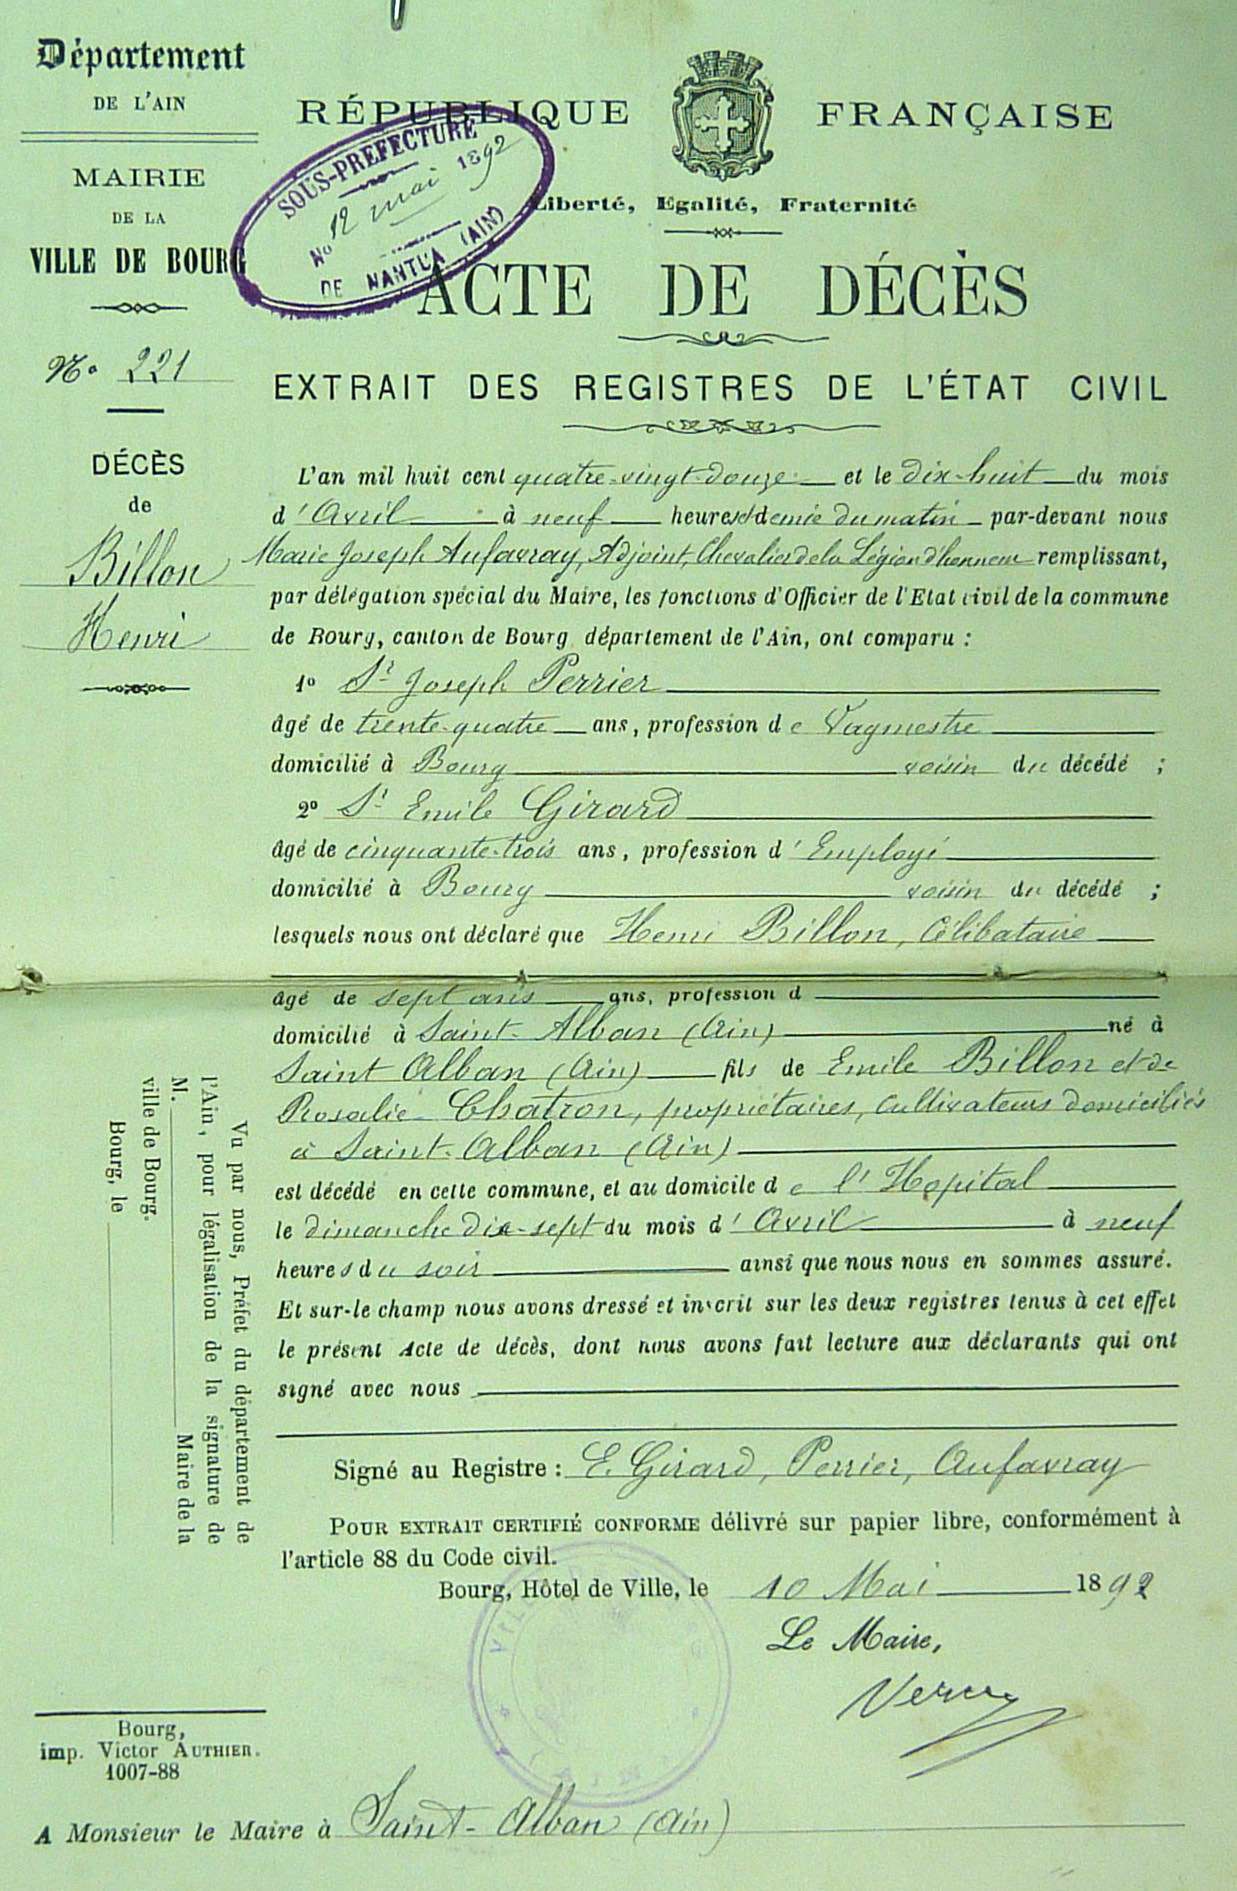 Département
DE L'AIN
MAIRIE
DE LA
VILLE DE BOURG
No 221
DÉCÈS
de
Billon
Henri
RÉPUBLIQUE FRANÇAISE
SOUS-PRÉFECTURE
No 12 mai 1892
DE NANTUA (AIN)
Liberté, Egalité, Fraternité
ACTE DE DÉCÈS
EXTRAIT DES REGISTRES DE L'ÉTAT CIVIL
L'an mil huit cent quatre-vingt-douze et le dix-huit du mois
d'Avril à neuf heures et demie du matin par-devant nous
Marie Joseph Aufavray, Adjoint, Chevalier de la Légion d'honneur remplissant,
par délégation spécial du Maire, les fonctions d'Officier de l'Etat civil de la commune
de Bourg, canton de Bourg département de l'Ain, ont comparu :
1o Sr Joseph Perrier
âgé de trente-quatre ans, profession de Vagmestre
domicilié à Bourg voisin du décédé ;
2o Sr Emile Girard
âgé de cinquante-trois ans, profession d'Employé
domicilié à Bourg voisin du décédé ;
lesquels nous ont déclaré que Henri Billon, Célibataire
âgé de sept ans ans, profession d
domicilié à Saint-Alban (Ain) né à
Saint Alban (Ain) fils de Emile Billon et de
Rosalie Chatron, propriétaires, cultivateurs domiciliés
à Saint-Alban (Ain)
est décédé en cette commune, et au domicile de l'Hopital
le dimanche dix-sept du mois d'Avril à neuf
heures du soir ainsi que nous nous en sommes assuré.
Et sur-le champ nous avons dressé et inscrit sur les deux registres tenus à cet effet
le présent acte de décès, dont nous avons fait lecture aux déclarants qui ont
signé avec nous
Signé au Registre : E. Girard, Perrier, Aufavray
POUR EXTRAIT CERTIFIÉ CONFORME délivré sur papier libre, conformément à
l'article 88 du Code civil.
Bourg, Hôtel de Ville, le 10 Mai 1892
Le Maire,
Vu par nous, Préfet du département de
l'Ain, pour légalisation de la signature de
M. Maire de la
ville de Bourg.
Bourg, le
Bourg,
imp. Victor AUTHIER.
1007-88
A Monsieur le Maire à Saint-Alban (Ain)